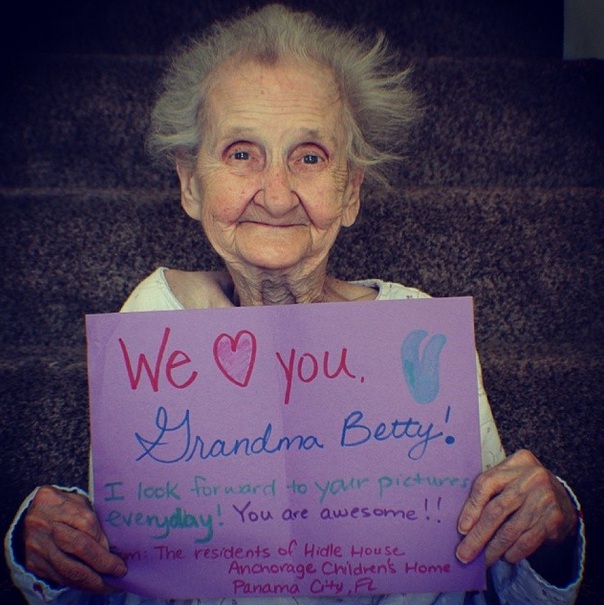 We ♡ you,
Grandma Betty!
I look forward to your pictures
everyday! You are awesome!!
The residents of Hidle House
Anchorage Children's Home
Panama City, FL